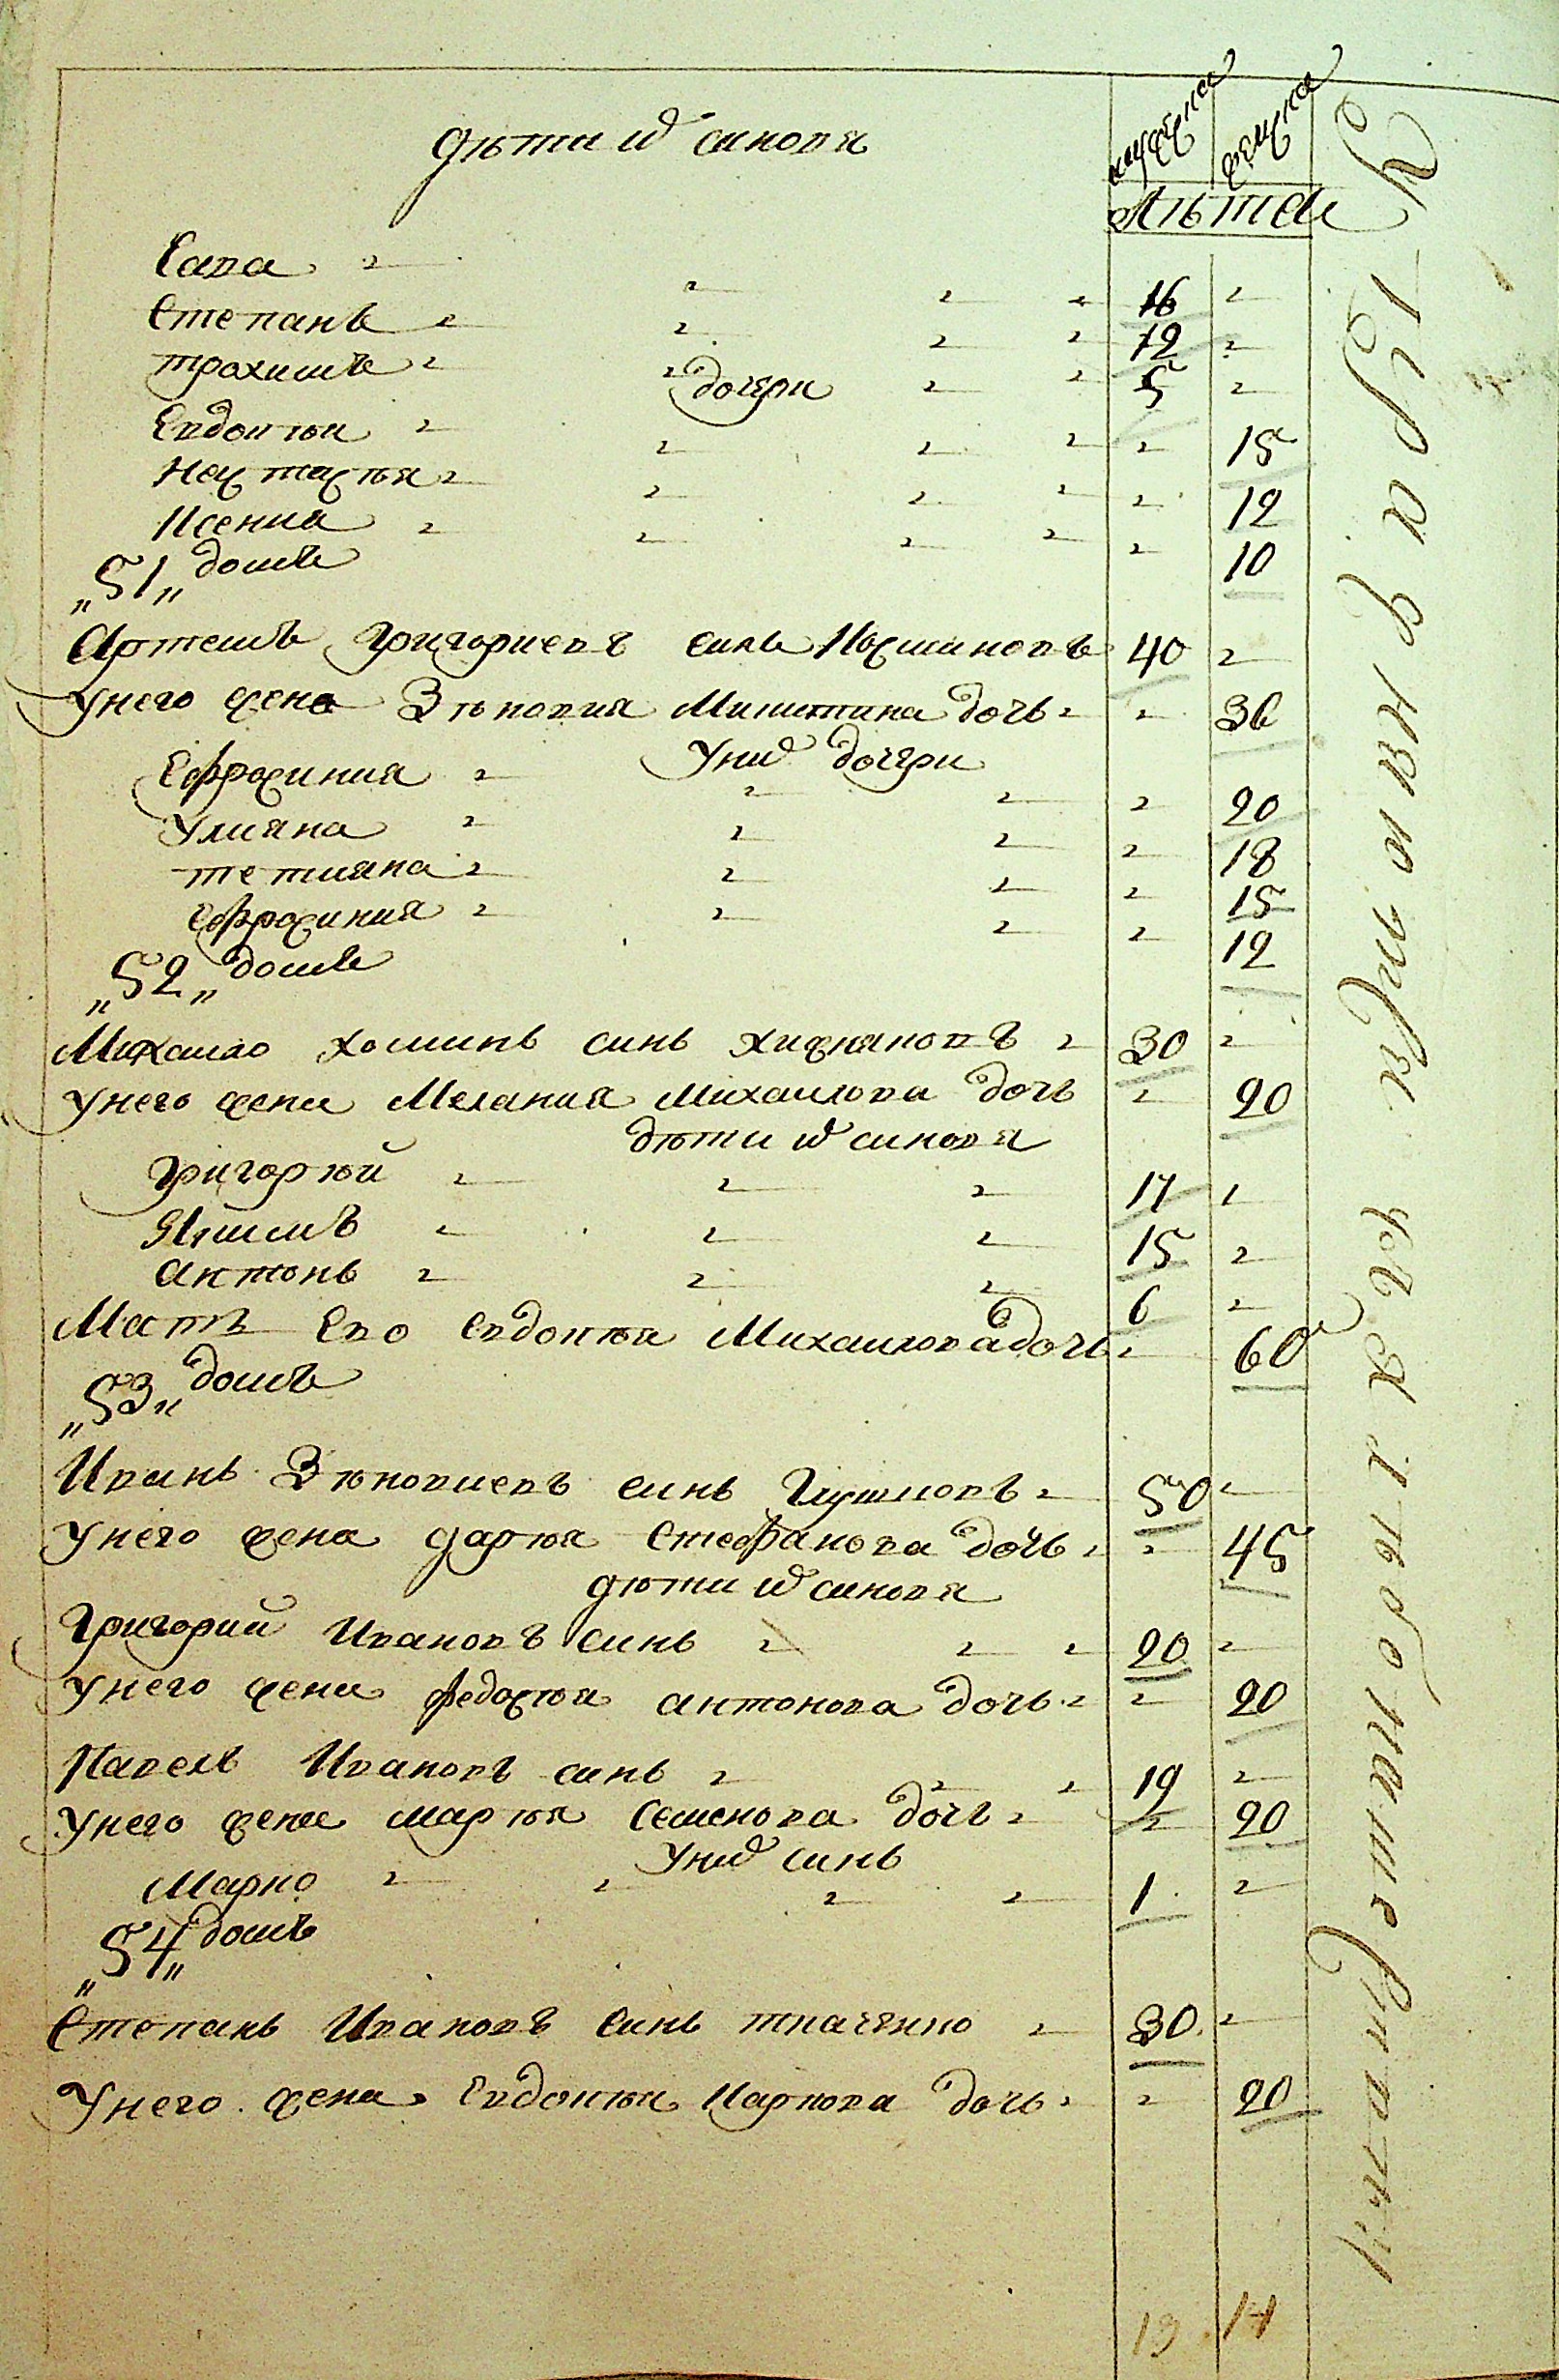 дѣти и͒ синовя
мужеска женска
лѣта
Сава 16
Степанъ 12
трохимъ 5
дочери
Евдокѣя 15
Настасѣя 12
Ксения 10
„51„ домъ
Артемъ Григориевъ синъ 40
У него жена Зѣновия Микитина дочъ 36
У них дочери
Ефросиния 20
Улияна 18
тетияна 15
Ефросиния 12
„52„ домъ
Михаило хоминъ синъ хижняковъ 30
У него жена Мелания Михаилова дочъ 20
дѣти их синовя
Григорѣй 17
Якимъ 15
Антонъ 6
Матъ Ево Евдокѣя Михаилова дочъ 60
„53„ домъ
Иванъ Зѣновиевъ синъ 50
У него жена дарѣя Стефанова дочъ 45
дѣти их синовя
Григорий Ивановъ синъ 20
У него жена федосѣя антонова дочъ 20
Павелъ Ивановъ синъ 19
У него жена марѣя Семенова дочъ 20
У них синъ
Марко 1
„54„ домъ
Степанъ Ивановъ Синъ ткаченко 30
У него жена Евдокѣя Карпова дочъ 20
13 14